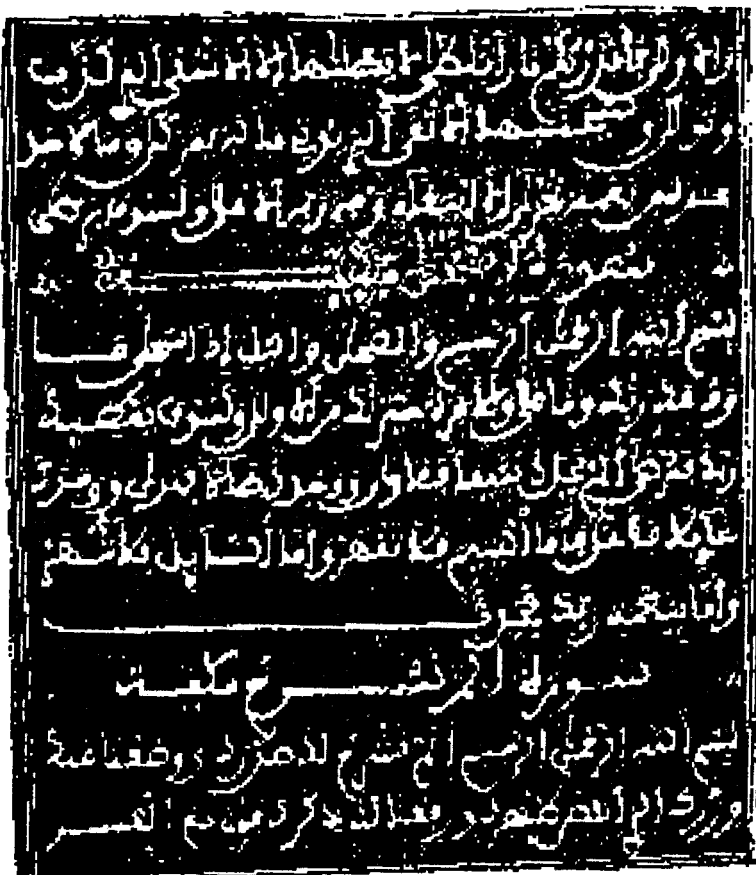 والأولى فأنذرتكم نارا تلظى لا يصلها إلا الأشقى الذي كذب
وتولى وسيجنبها الأتقى الذي يوتي ماله يتزكى وما لأحد
عنده من نعمة تجزى إلا ابتغاء وجه ربه الأعلى ولسوف يرضى
سورة والضحى
بسم الله الرحمن الرحيم والضحى واليل إذا سجى ما
ودعك ربك وما قلى وللآخرة خير لك من الأولى ولسوف يعطيك
ربك فترضى ألم يجدك يتيما فآوى ووجدك ضالا فهدى ووجدك
عائلا فأغنى فأما اليتيم فلا تقهر وأما السائل فلا تنهر
وأما بنعمة ربك فحدث
سورة ألم نشرح مكية
بسم الله الرحمن الرحيم ألم نشرح لك صدرك ووضعنا عنك
وزرك الذي أنقض ظهرك ورفعنا لك ذكرك فإن مع العسر